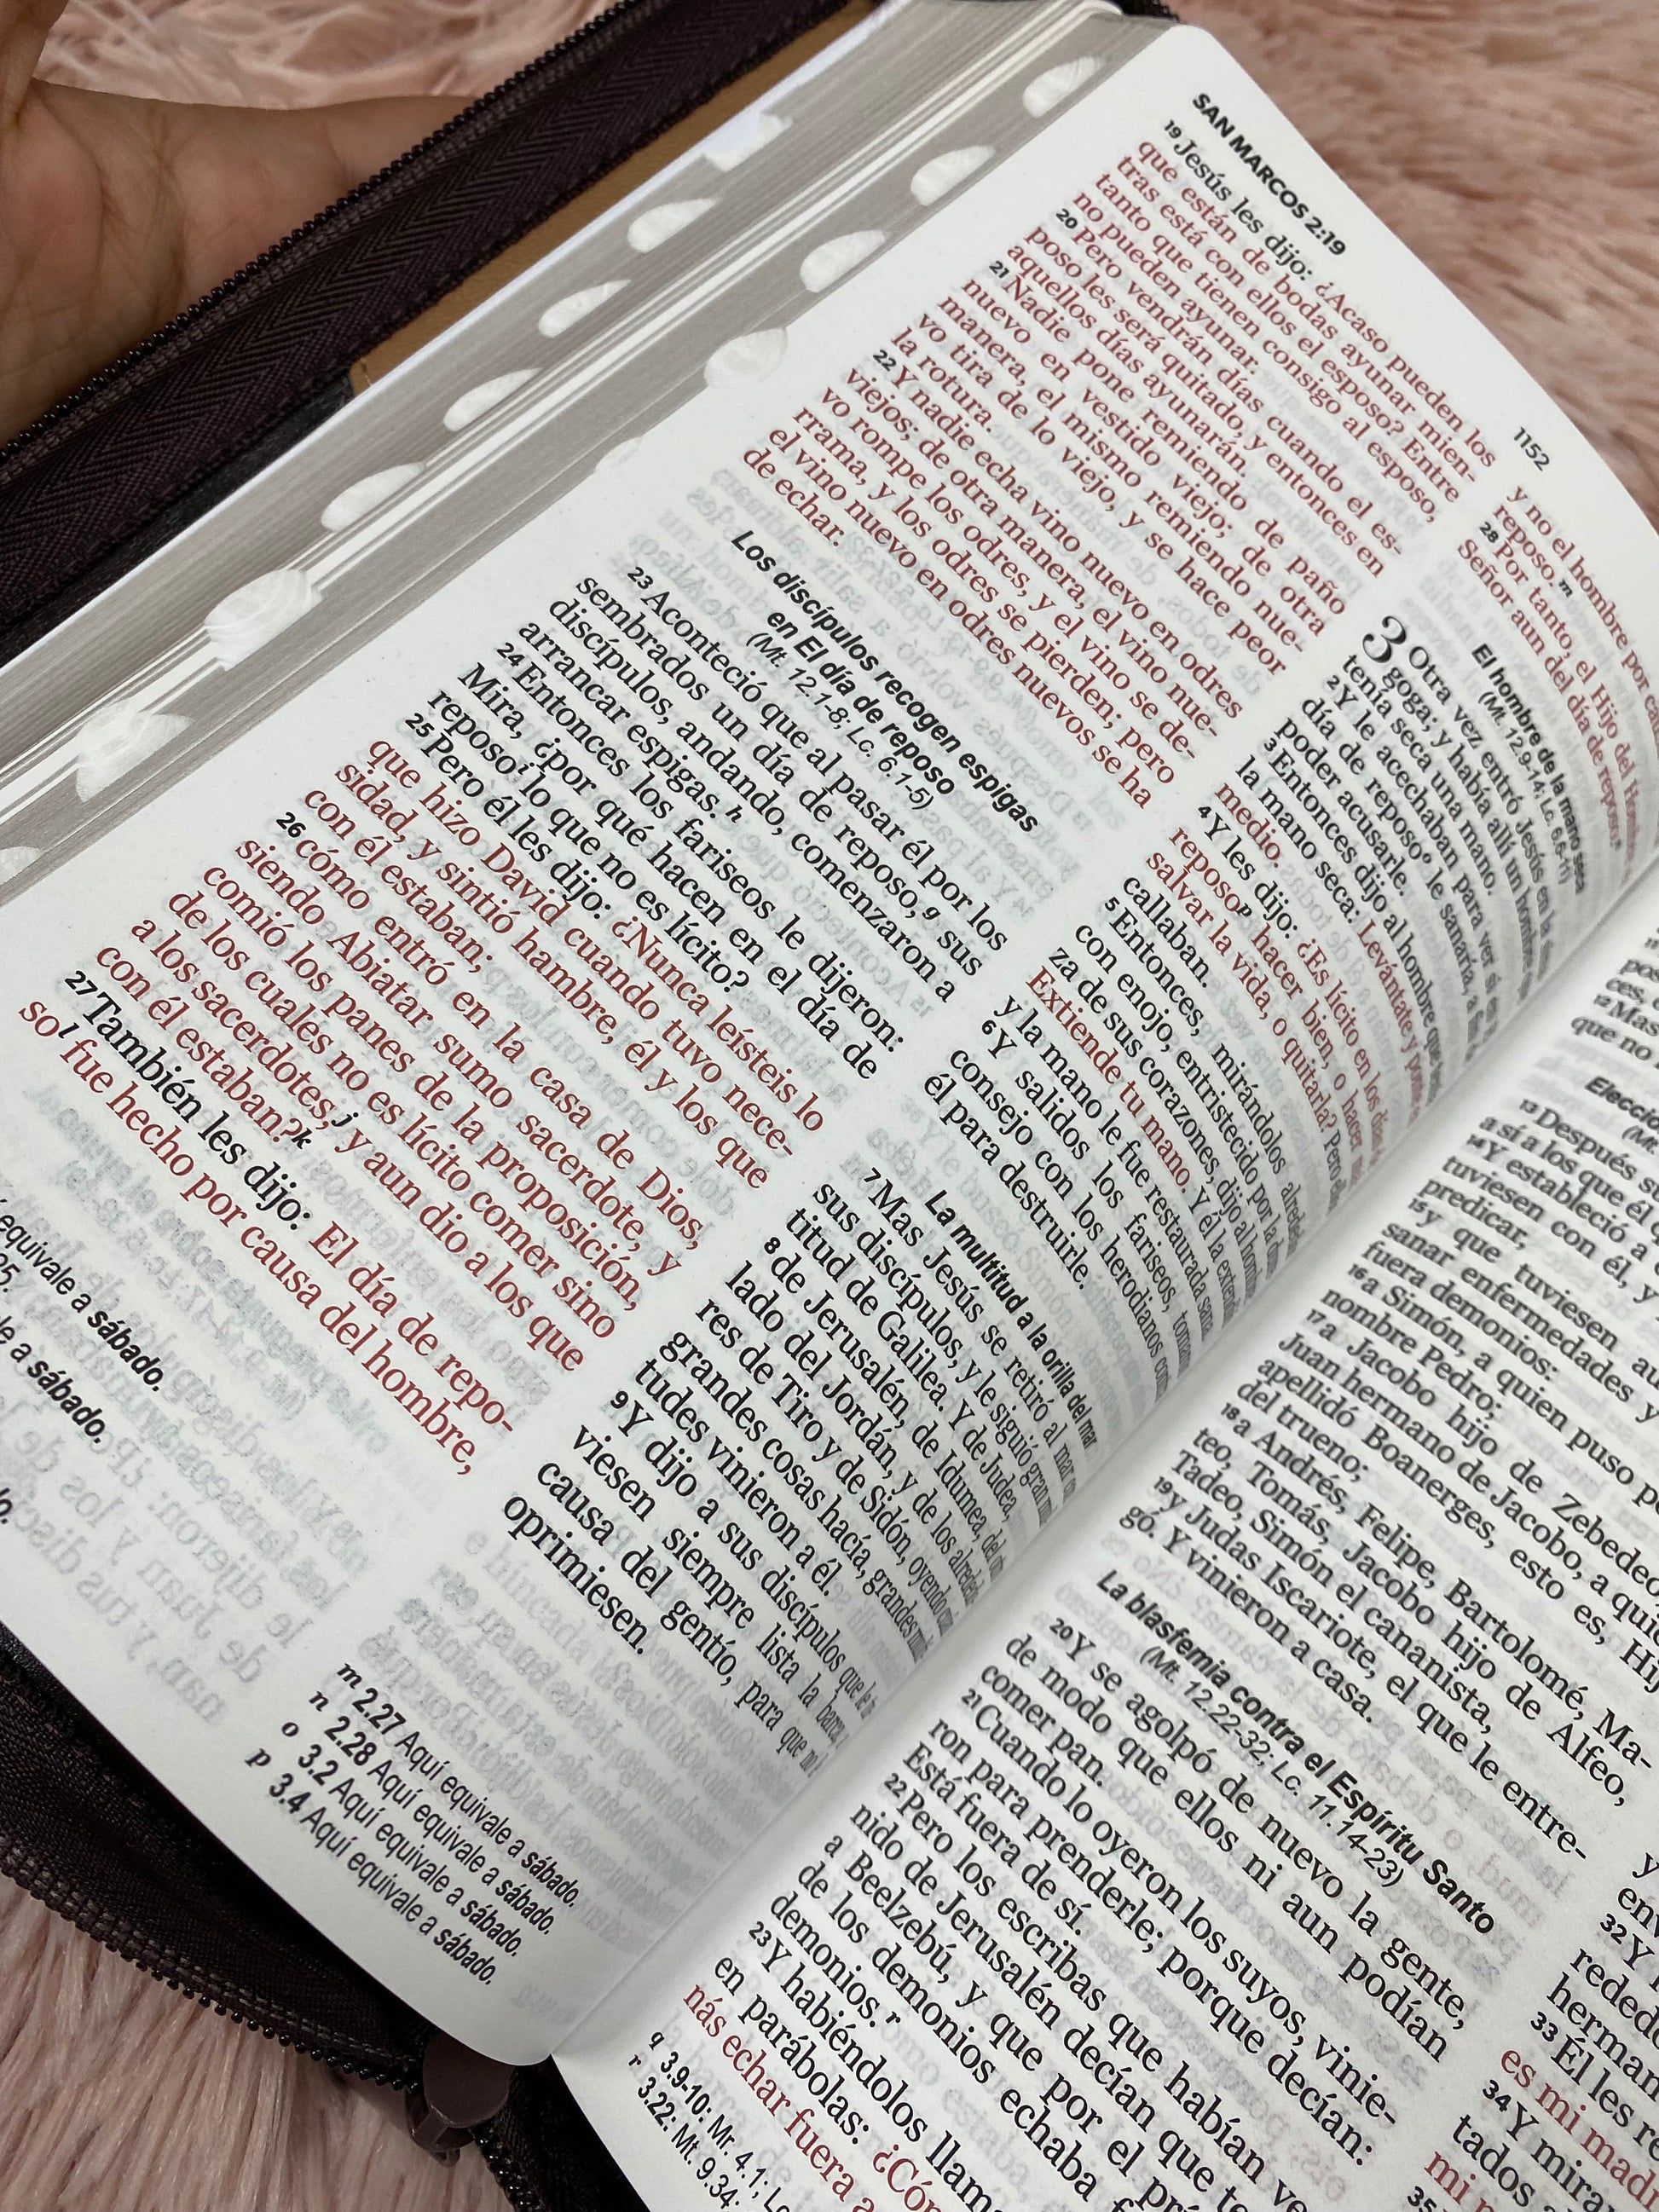 SAN MARCOS 2:19
1152
19 Jesús les dijo: ¿Acaso pueden los
que están de bodas ayunar mien-
tras está con ellos el esposo? Entre
tanto que tienen consigo al esposo,
no pueden ayunar.
20 Pero vendrán días cuando el es-
poso les será quitado, y entonces en
aquellos días ayunarán.
21 Nadie pone remiendo de paño
nuevo en vestido viejo; de otra
manera, el mismo remiendo nue-
vo tira de lo viejo, y se hace peor
la rotura.
22 Y nadie echa vino nuevo en odres
viejos; de otra manera, el vino nue-
vo rompe los odres, y el vino se de-
rrama, y los odres se pierden; pero
el vino nuevo en odres nuevos se ha
de echar.
Los discípulos recogen espigas
en El día de reposo
(Mt. 12.1-8; Lc. 6.1-5)
23 Aconteció que al pasar él por los
sembrados un día de reposo,g sus
discípulos, andando, comenzaron a
arrancar espigas.h
24 Entonces los fariseos le dijeron:
Mira, ¿por qué hacen en el día de
reposoi lo que no es lícito?
25 Pero él les dijo: ¿Nunca leísteis lo
que hizo David cuando tuvo nece-
sidad, y sintió hambre, él y los que
con él estaban;
26 cómo entró en la casa de Dios,
siendo Abiatar sumo sacerdote, y
comió los panes de la proposición,
de los cuales no es lícito comer sino
a los sacerdotes,j y aun dio a los que
con él estaban?k
27 También les dijo: El día de repo-
sol fue hecho por causa del hombre,
equivale a sábado.
25.
le a sábado.
do.
y no el hombre por
reposo.m
28 Por tanto, el Hijo del Hombre
Señor aun del día de reposo.n
El hombre de la mano seca
(Mt. 12.9-14; Lc. 6.6-11)
3 Otra vez entró Jesús en la
goga; y había allí un hombre
tenía seca una mano.
2 Y le acechaban para ver si en
día de reposoo le sanaría, a
poder acusarle.
3 Entonces dijo al hombre que
la mano seca: Levántate y
medio.
4 Y les dijo: ¿Es lícito en los días
reposop hacer bien, o hacer
salvar la vida, o quitarla? Pero
callaban.
5 Entonces, mirándolos alrededor
con enojo, entristecido por la
za de sus corazones, dijo al hombre
Extiende tu mano. Y él la
y la mano le fue restaurada sana.
6 Y salidos los fariseos,
consejo con los herodianos
él para destruirle.
La multitud a la orilla del mar
7 Mas Jesús se retiró al mar
sus discípulos, y le siguió gran
titud de Galilea. Y de Judea,
8 de Jerusalén, de Idumea, del
lado del Jordán, y de los
res de Tiro y de Sidón, oyendo
grandes cosas hacía, grandes
tudes vinieron a él.
9 Y dijo a sus discípulos que le
viesen siempre lista la barca,
causa del gentío, para que no
oprimiesen.
m 2.27 Aquí equivale a sábado.
n 2.28 Aquí equivale a sábado.
o 3.2 Aquí equivale a sábado.
p 3.4 Aquí equivale a sábado.
12 Mas
que no
Elecció
(Mt.
13 Después
a sí a los que él
14 Y estableció a
tuviesen con él, y
predicar,
15 y que tuviesen
sanar enfermedades y
fuera demonios:
16 a Simón, a quien puso
nombre Pedro;
17 a Jacobo hijo de Zebedeo,
Juan hermano de Jacobo, a
apellidó Boanerges, esto es,
del trueno;
18 a Andrés, Felipe, Bartolomé, Ma-
teo, Tomás, Jacobo hijo de Alfeo,
Tadeo, Simón el cananista,
19 y Judas Iscariote, el que le entre-
gó. Y vinieron a casa.
La blasfemia contra el Espíritu Santo
(Mt. 12.22-32; Lc. 11.14-23)
20 Y se agolpó de nuevo la gente,
de modo que ellos ni aun podían
comer pan.
21 Cuando lo oyeron los suyos, vinie-
ron para prenderle; porque decían:
Está fuera de sí.
22 Pero los escribas que habían
nido de Jerusalén decían que
a Beelzebú, y que por el
de los demonios echaba
demonios.r
23 Y habiéndolos
en parábolas:
nás echar fuera a
q 3.9-10: Mr. 4.1;
r 3.22: Mt. 9.34;
32 Y
33 Él les
es mi
34 Y
tados
mi
35